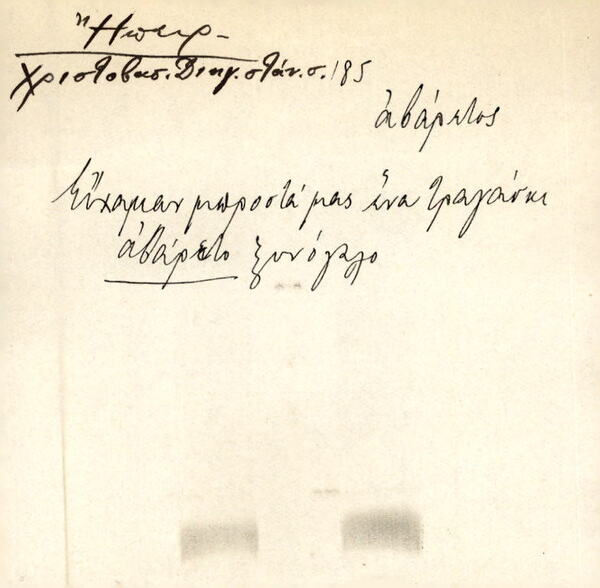 Ἤπειρ-
Χριστοβασ. Διηγ. στάν. σ. 185
ἀβάρετος
Εἴχαμαν μπροστά μας ἕνα τραγάσκι
ἀβάρετο ξυνόγαλο